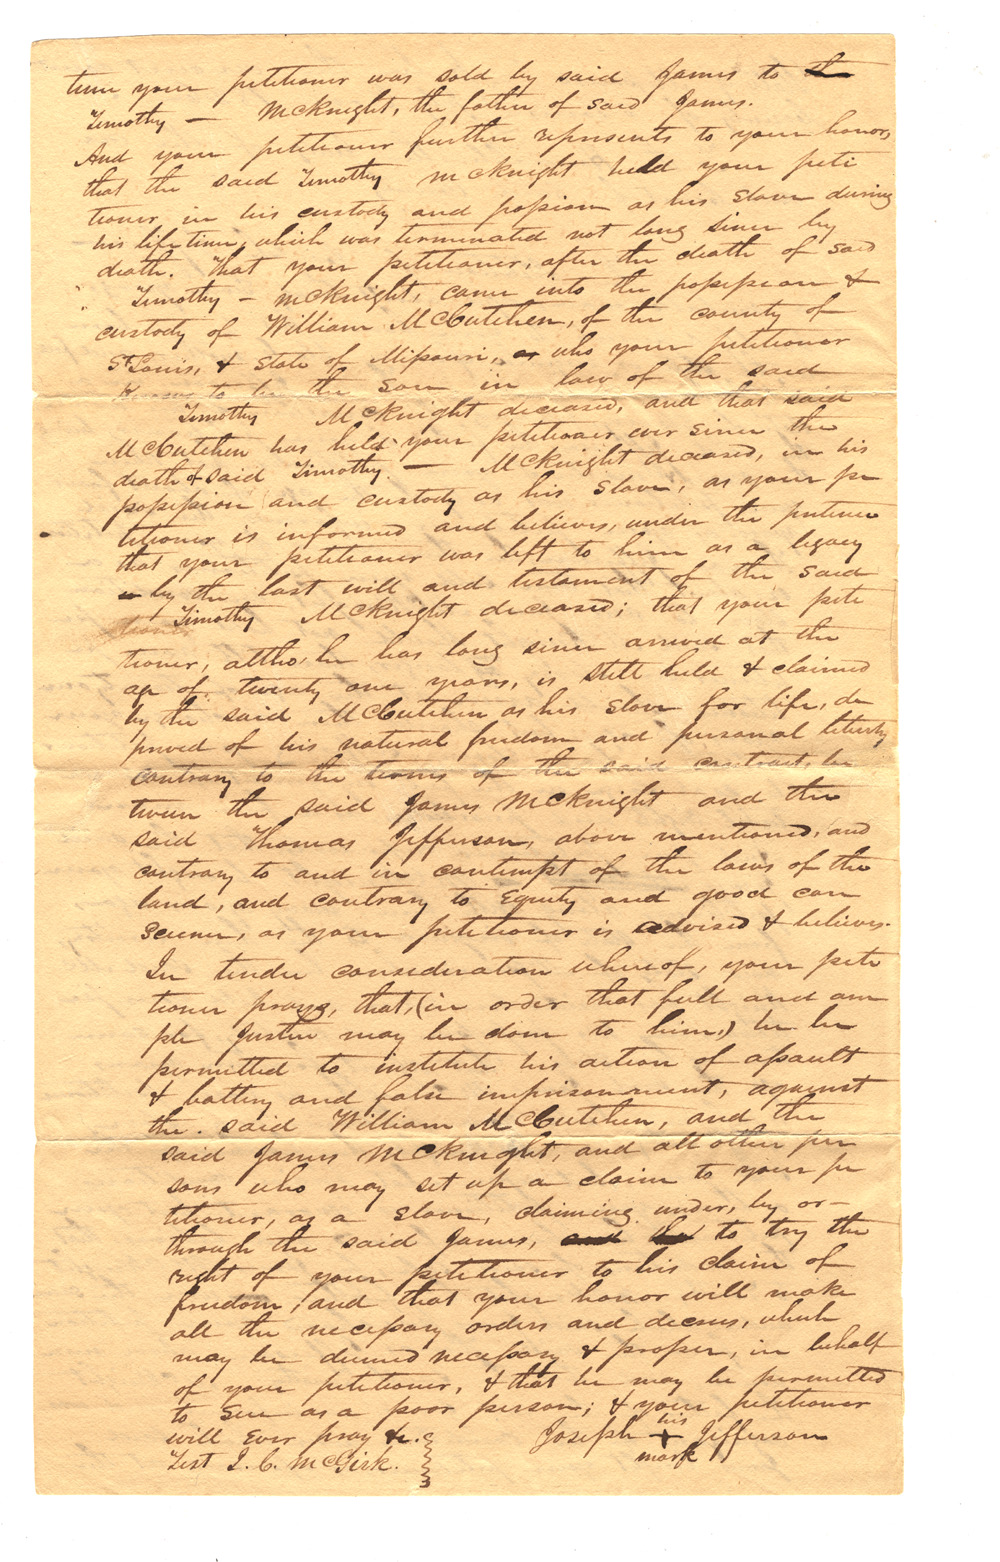 time your petitioner was sold by said James to
Timothy — McKnight, the father of said James.
And your petitioner further represents to your honor,
that the said Timothy McKnight held your peti
tioner in his custody and possession as his slave during
his life time, which was terminated not long since by
death. That your petitioner, after the death of said
Timothy – McKnight, came into the possession &
custody of William McCutchen, of the county of
St Louis, & State of Missouri, who your petitioner
to be the son in law of the said
Timothy McKnight deceased, and that said
McCutchen has held your petitioner ever since the
death of said Timothy — McKnight deceased, in his
possession and custody as his slave, as your pe
titioner is informed and believes, under the pretence
that your petitioner was left to him as a legacy
by the last will and testament of the said
Timothy McKnight deceased; that your peti
tioner, altho' he has long since arrived at the
age of twenty one years, is still held & claimed
by the said McCutchen as his slave for life, de
prived of his natural freedom and personal liberty
contrary to the terms of the said contract, be
tween the said James McKnight and the
said Thomas Jefferson, above mentioned, and
contrary to and in contempt of the laws of the
land, and contrary to Equity and good con
science, as your petitioner is advised & believes.
In tender consideration whereof, your peti
tioner prays, that, (in order that full and am
ple Justice may be done to him,) he be
permitted to institute his action of assault
& battery and false imprisonment, against
the said William McCutchen, and the
said James McKnight, and all other per
sons who may set up a claim to your pe
titioner, as a slave, claiming under, by or –
through the said James, to try the
right of your petitioner to his claim of
freedom; and that your honor will make
all the necessary orders and decrees, which
may be deemed necessary & proper, in behalf
of your petitioner, & that he may be permitted
to sue as a poor person; & your petitioner
will ever pray &c.
Joseph his + mark Jefferson
Test I. C. McGirk.